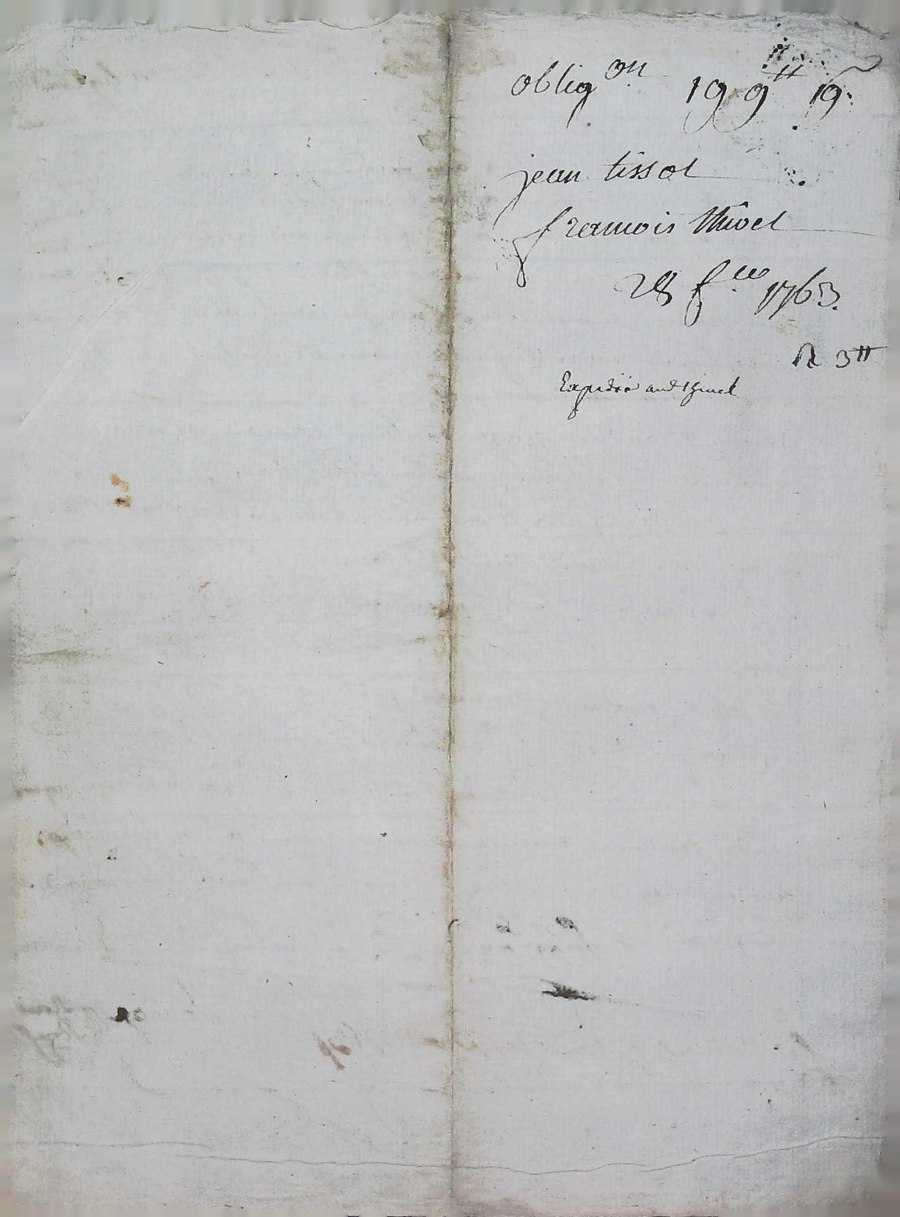 obligon 199tt 19
jean tissot
francois thivel
28 fce 1763
R 3tt
Expédié audt thivel